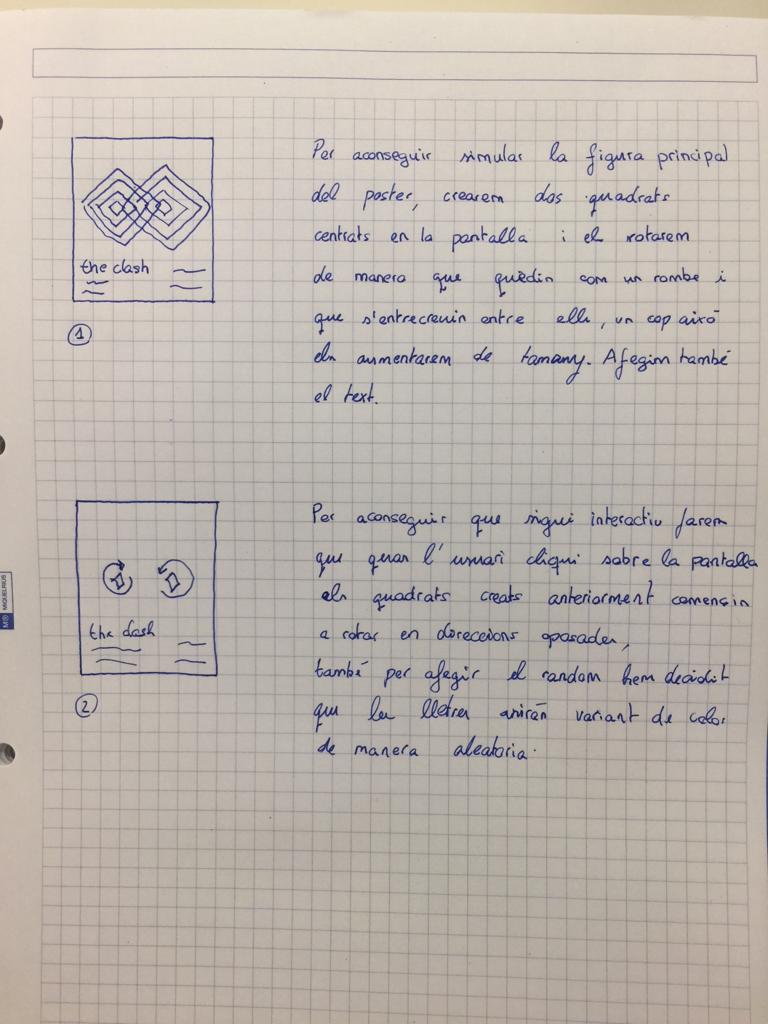 the clash
1
Per aconseguir simular la figura principal
del poster, crearem dos quadrats
centrats en la pantalla i el rotarem
de manera que quedin com un rombe i
que s'entrecreuin entre ells, un cop això
els aumentarem de tamany. Afegim també
el text.
MIQUELRIUS
the clash
2
Per aconseguir que sigui interactiu farem
que quan l'usuari cliqui sobre la pantalla
els quadrats creats anteriorment comensin
a rotar en direccions oposades,
també per afegir el random hem decidit
que les lletres aniràn variant de color
de manera aleatoria.